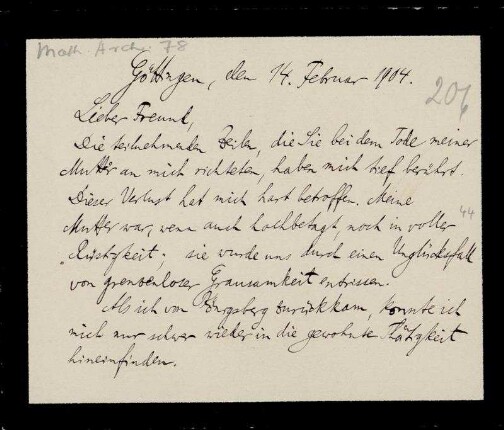 Math. Arch. 78
Göttingen, den 14. Februar 1904.
206
Lieber Freund,
Die teilnehmenden Zeilen, die Sie bei dem Tode meiner
Mutter an mich richteten, haben mich tief berührt.
Dieser Verlust hat mich hart betroffen. Meine
Mutter war, wenn auch hochbetagt, noch in voller
44
Rüstigkeit; sie wurde uns durch einen Unglücksfall
von grenzenloser Grausamkeit entrissen.
Als ich von zurückkam, konnte ich
mich nur schwer wieder in die gewohnte Thätigkeit
hineinfinden.